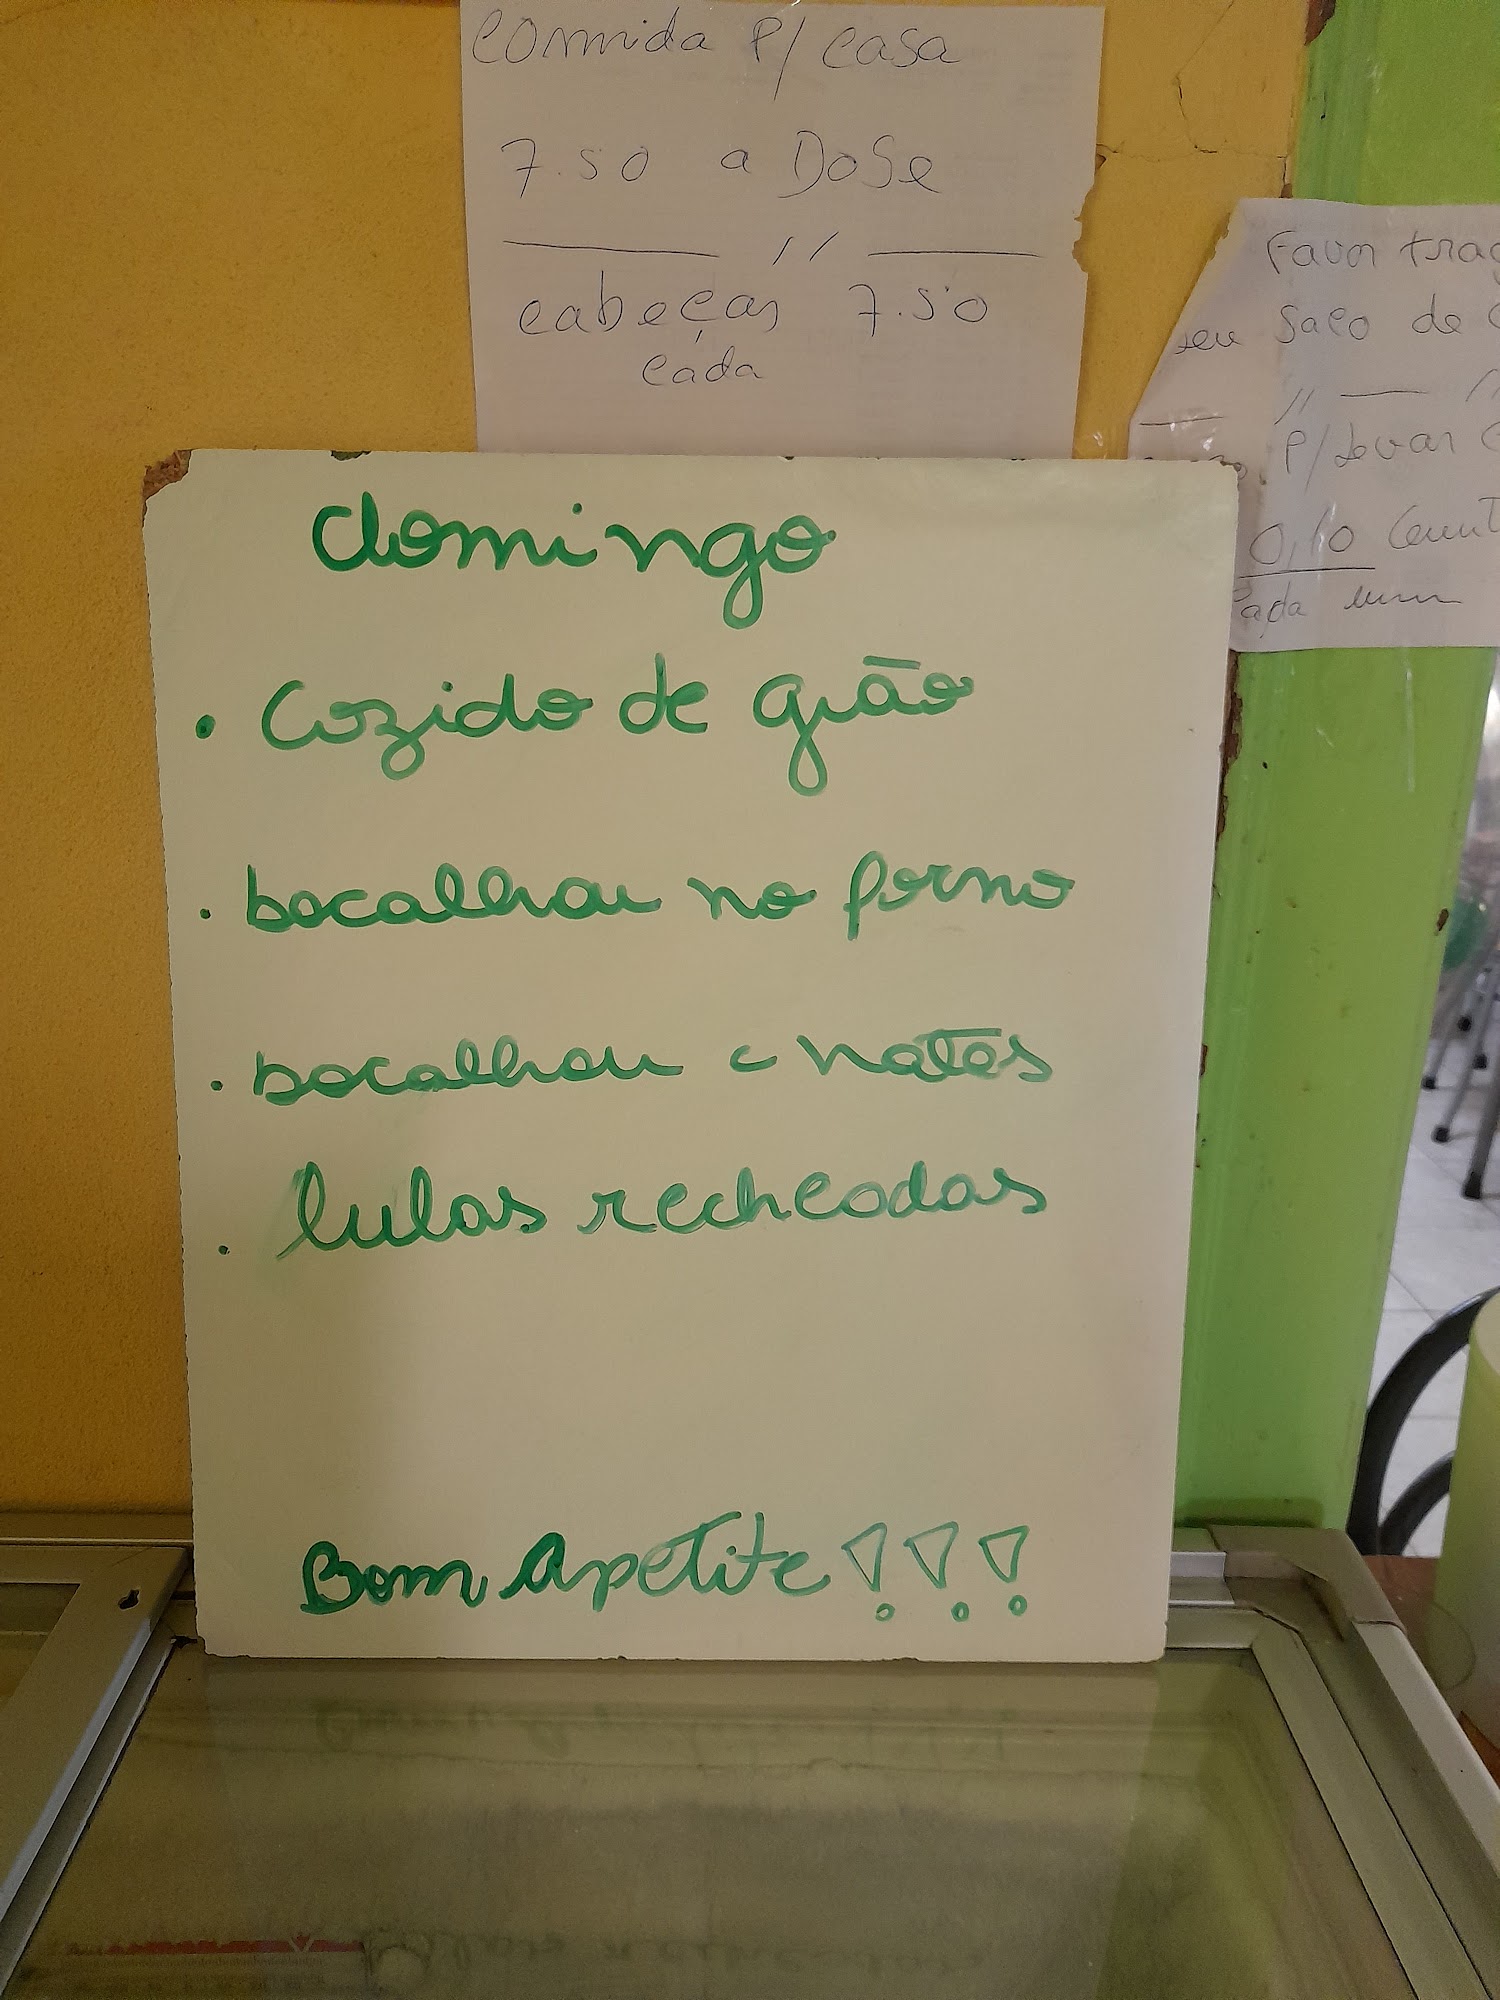 comida P/ casa
7.50 a Dose
//
cabeças 7.50
cada
Favor
seu saco de
//
P/ Levar
0,10
cada um
domingo
• Cozido de grão
• bacalhau no forno
• bacalhau c natas
• lulas recheadas
Bom Apetite!!!